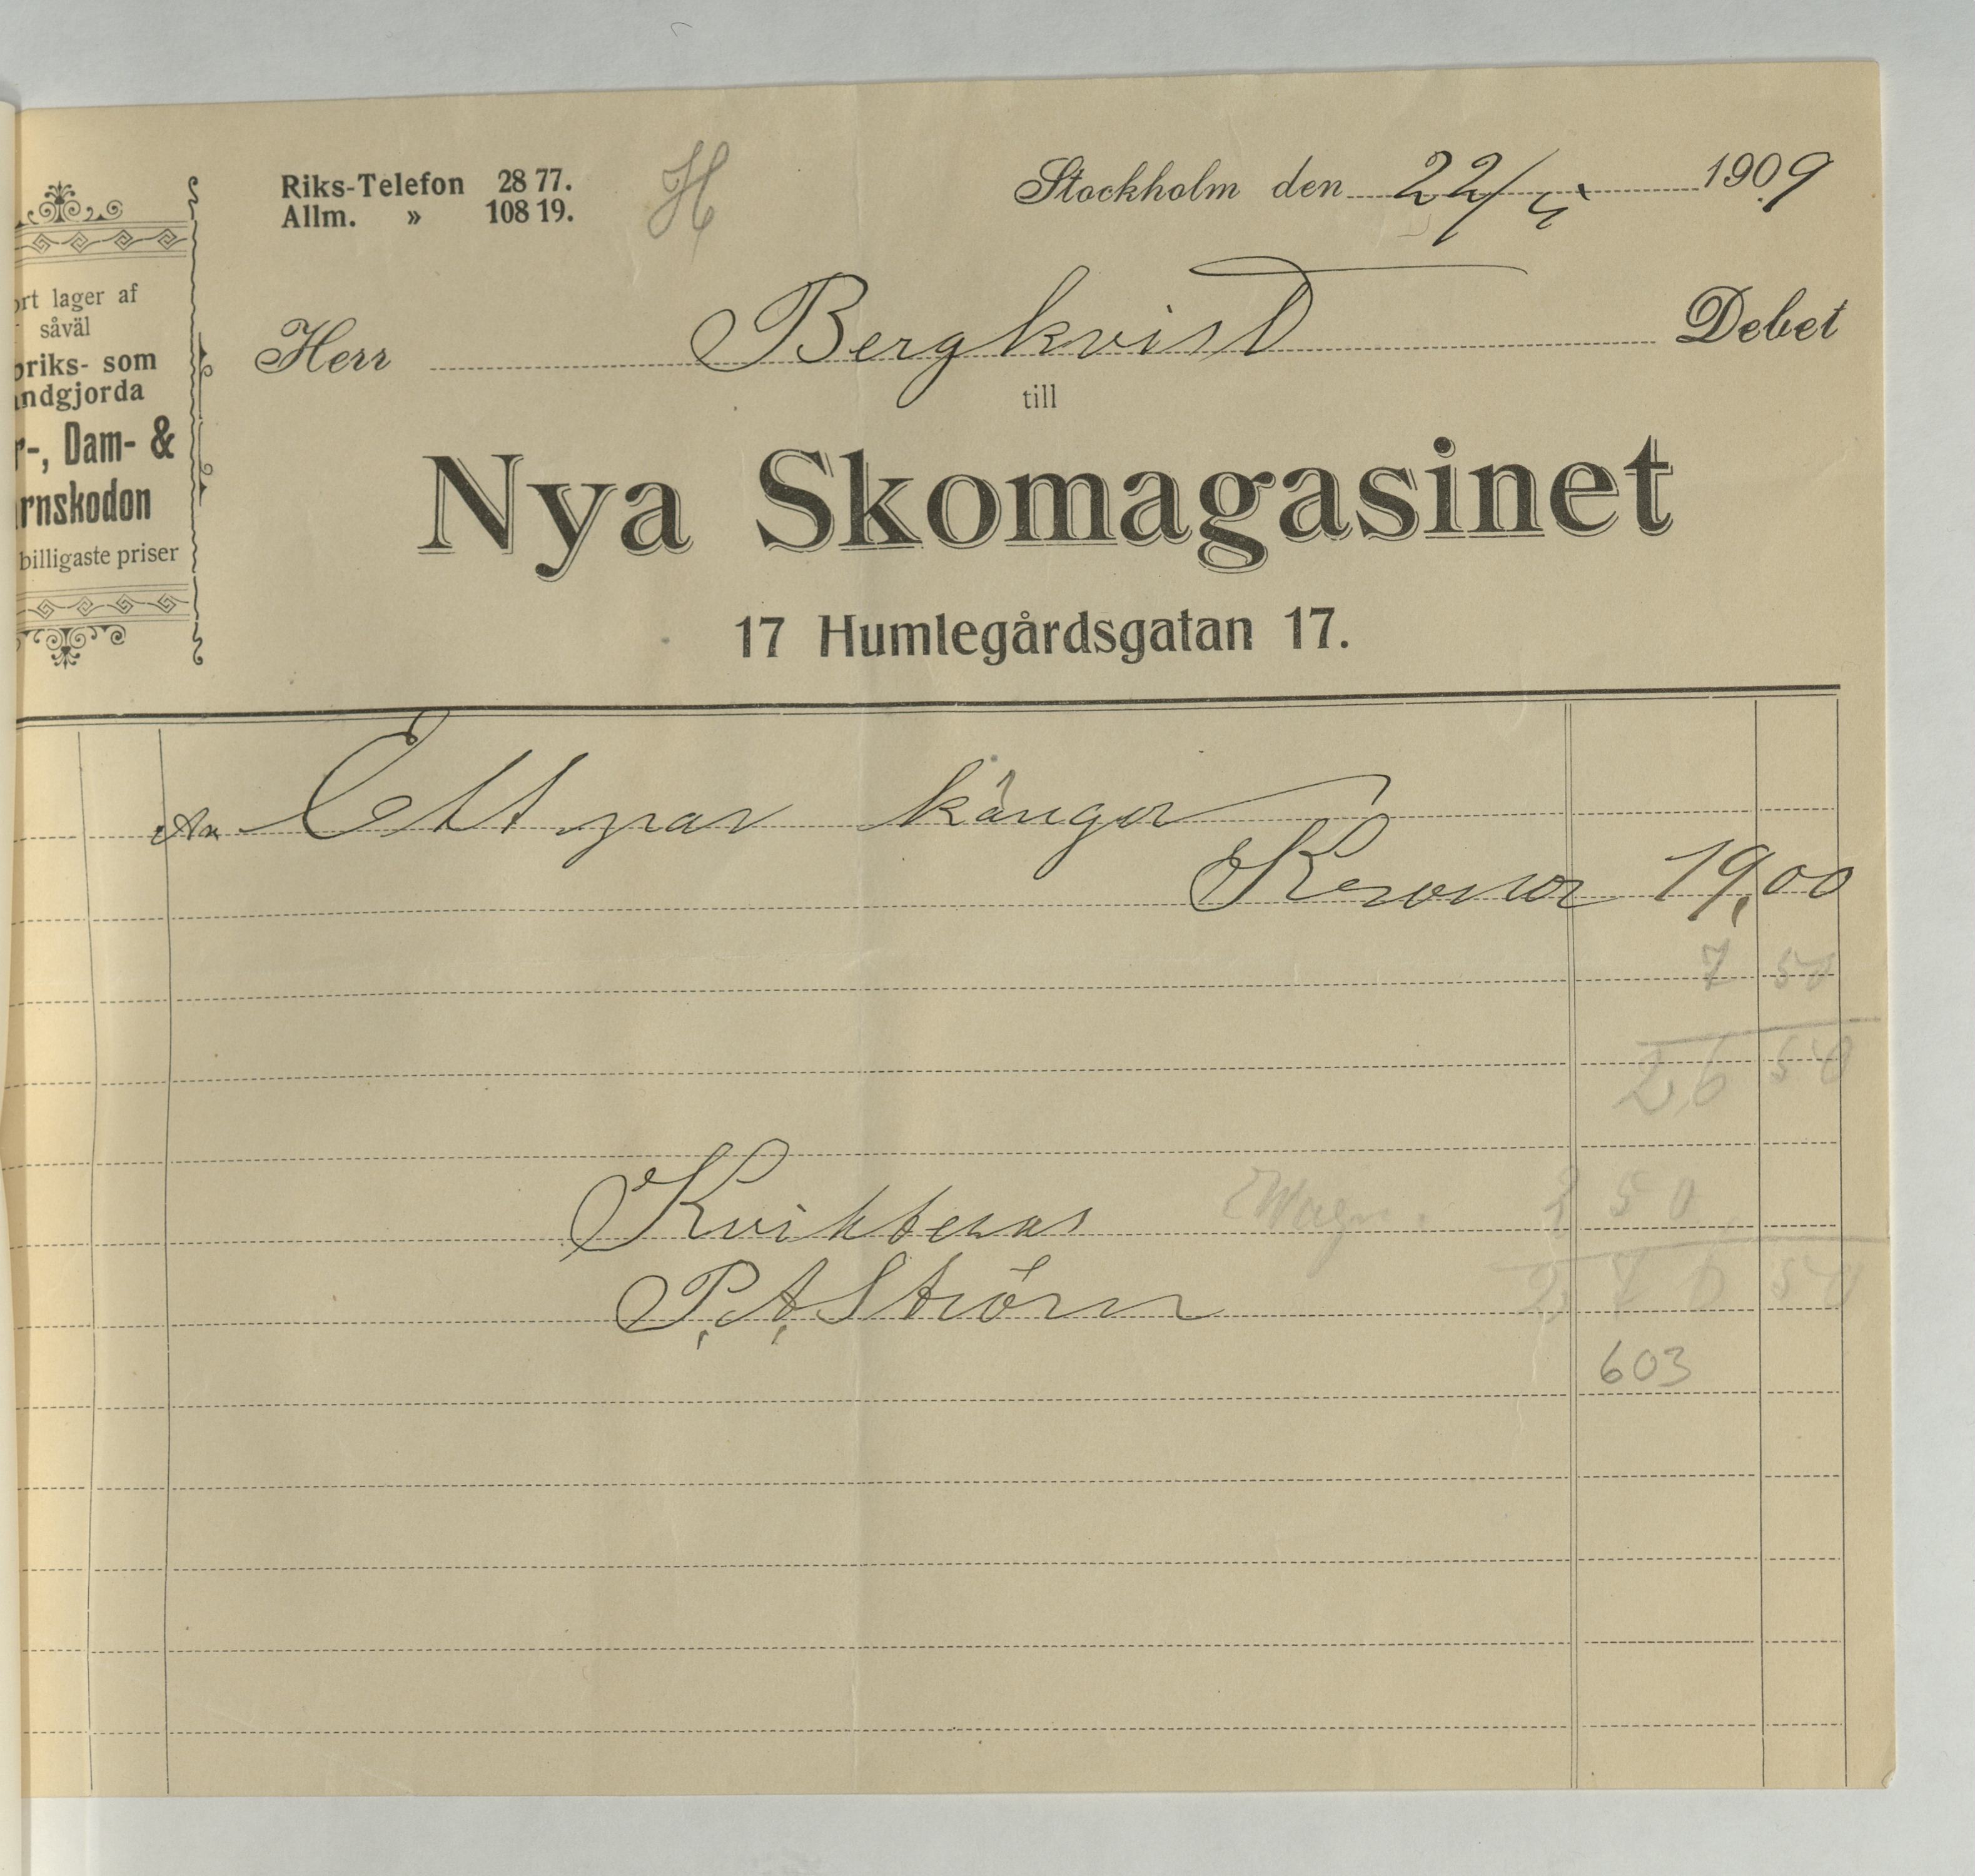 Riks-Telefon 28 77.
Allm. » 108 19.
H
Stockholm den 22/5 1909
ort lager af
såväl
briks- som
andgjorda
r-, Dam- &
arnskodon
billigaste priser
Herr Bergkvist Debet
till
Nya Skomagasinet
17 Humlegårdsgatan 17.
An Ett par kängor
Kronor 19,00
7 50
26 50
Kvitteras
2 5 0
P.A. Ström
2 7 6 50
603